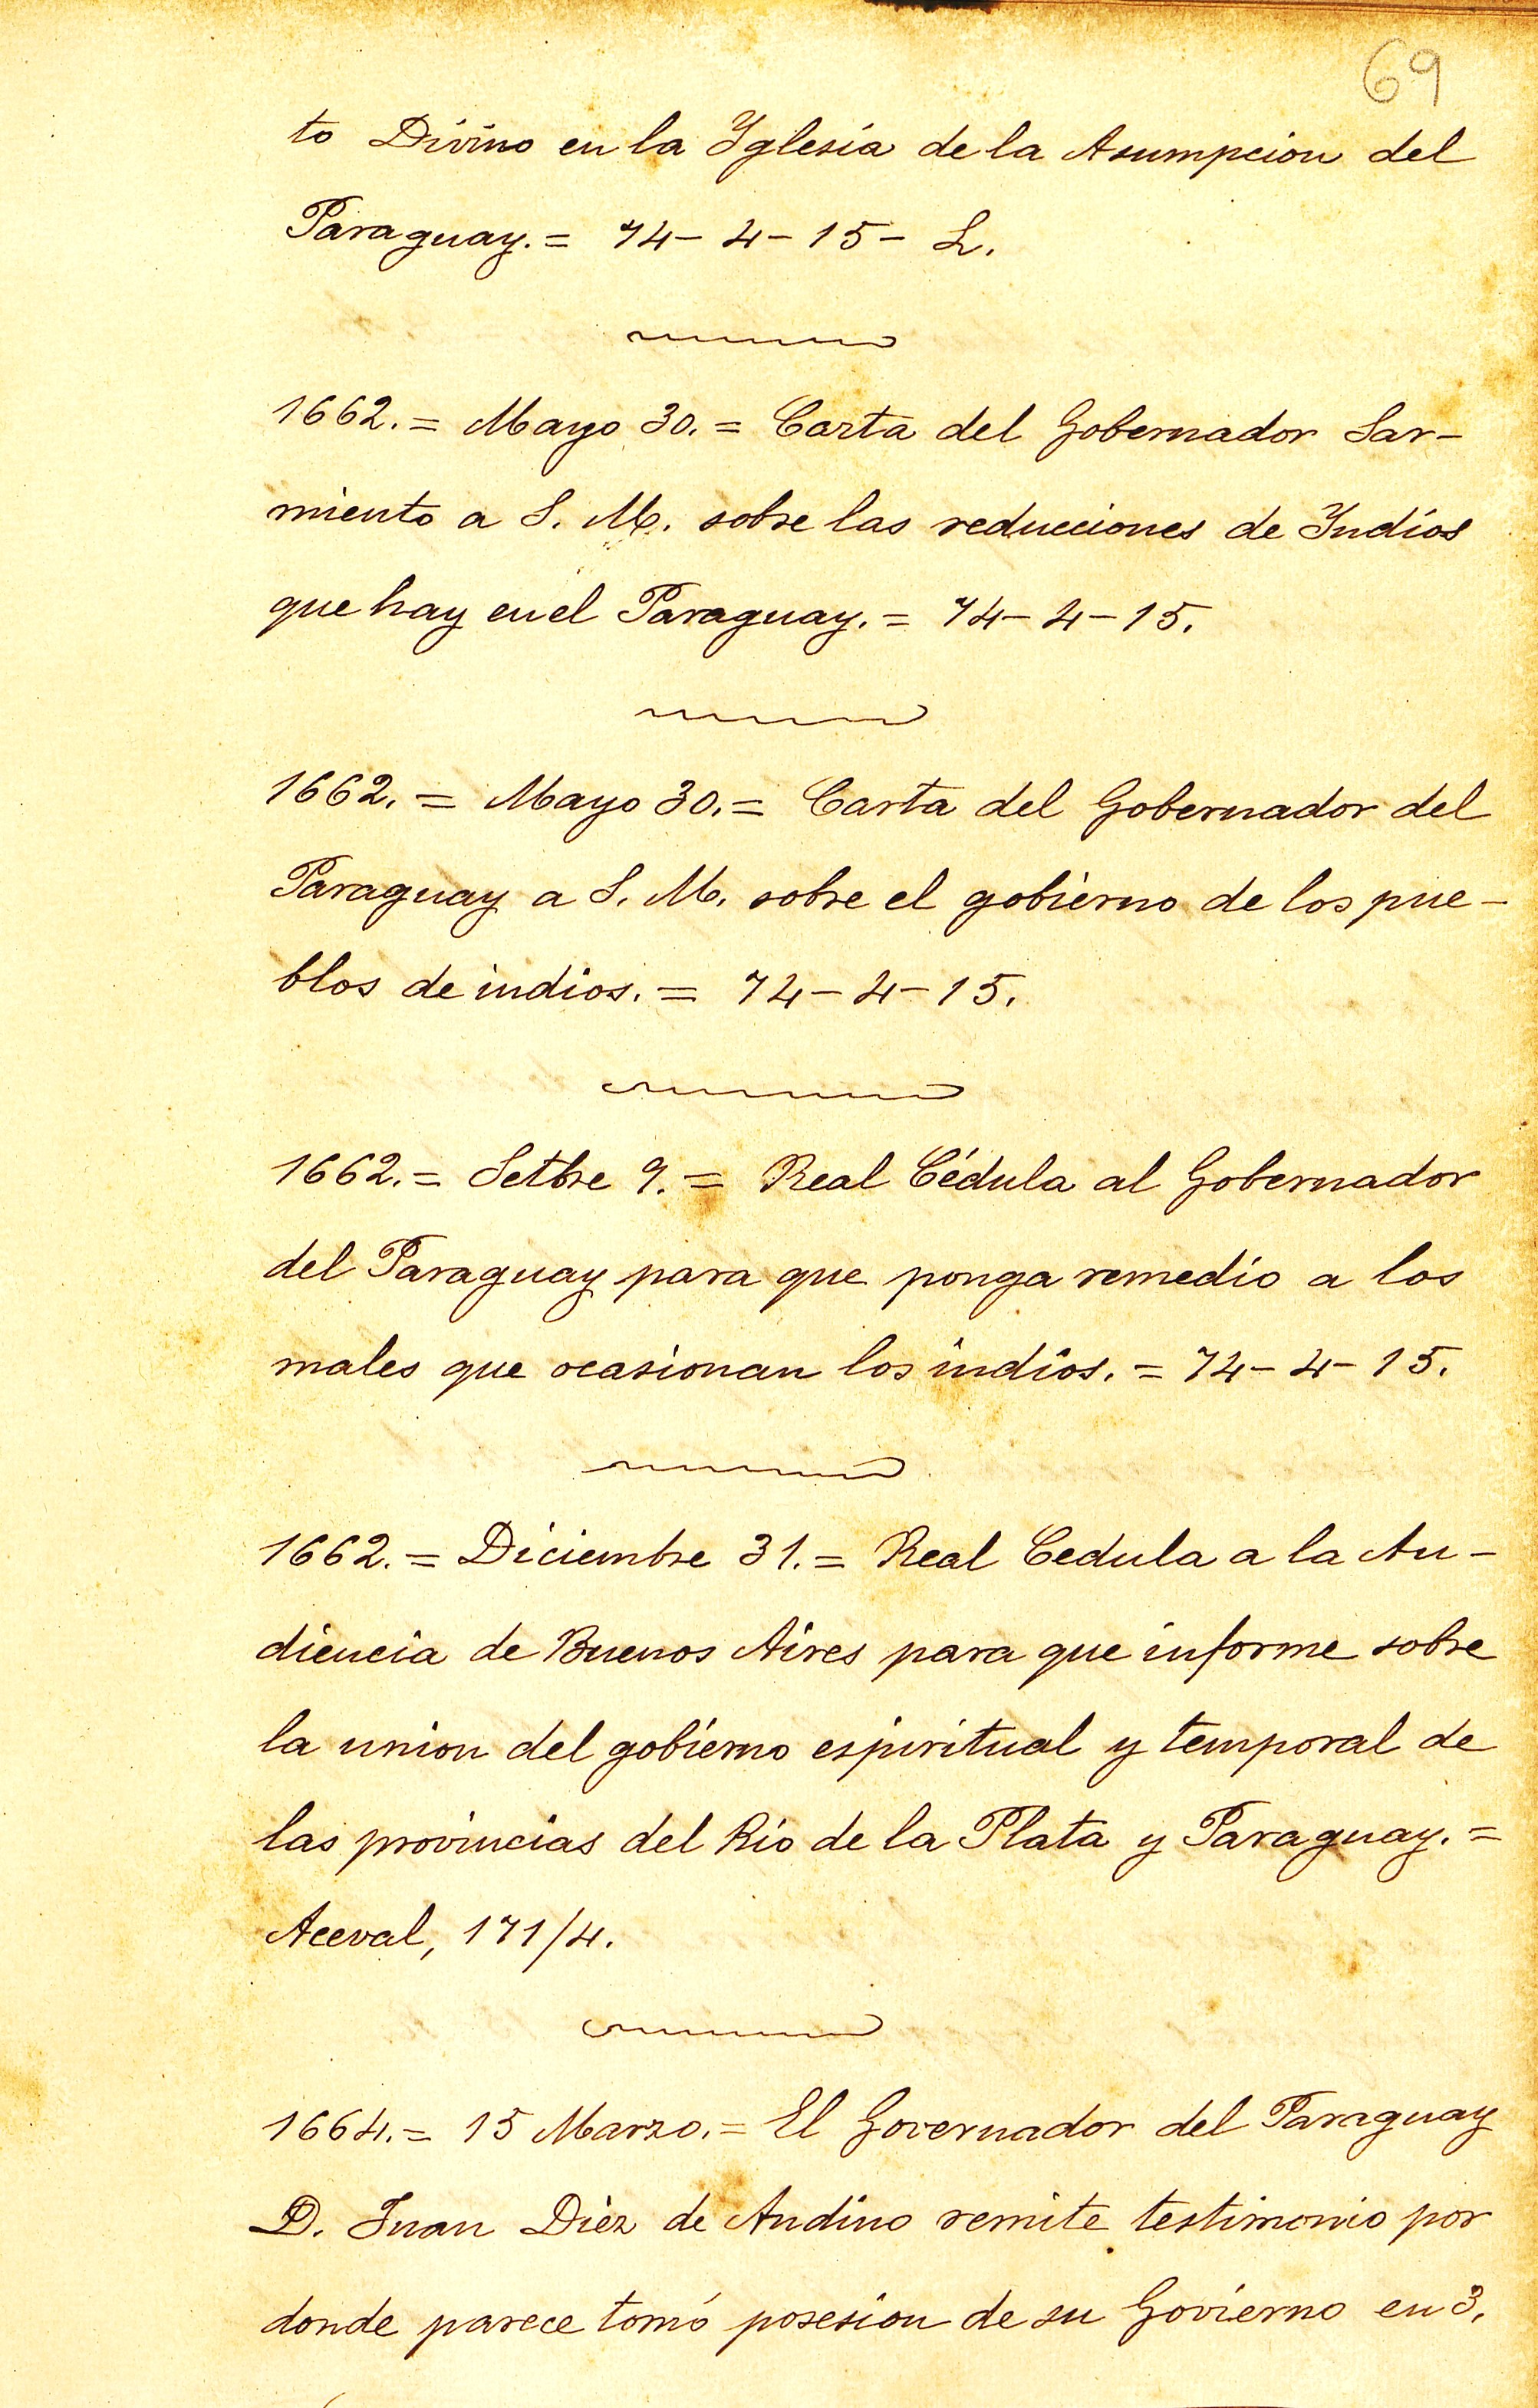 69
to Divino en la Yglesia de la Asumpcion del
Paraguay. = 74 - 4 - 15 - L.
1662. = Mayo 30. = Carta del Gobernador Sar-
miento a S. M. sobre las reducciones de Yndios
que hay en el Paraguay. = 74 - 4 - 15.
1662. = Mayo 30. = Carta del Gobernador del
Paraguay a S. M. sobre el gobierno de los pue-
blos de indios. = 74 - 4 - 15.
1662. = Setbre 9. = Real Cédula al Gobernador
del Paraguay para que ponga remedio a los
males que ocasionan los indios. = 74 - 4 - 15.
1662. = Diciembre 31. = Real Cedula a la Au-
diencia de Buenos Aires para que informe sobre
la union del gobierno espiritual y temporal de
las provincias del Rio de la Plata y Paraguay. =
Aceval, 171/4.
1664. = 15 Marzo. = El Governador del Paraguay
D. Juan Diez de Andino remite testimonio por
donde parece tomó posesion de su Govierno en 3.